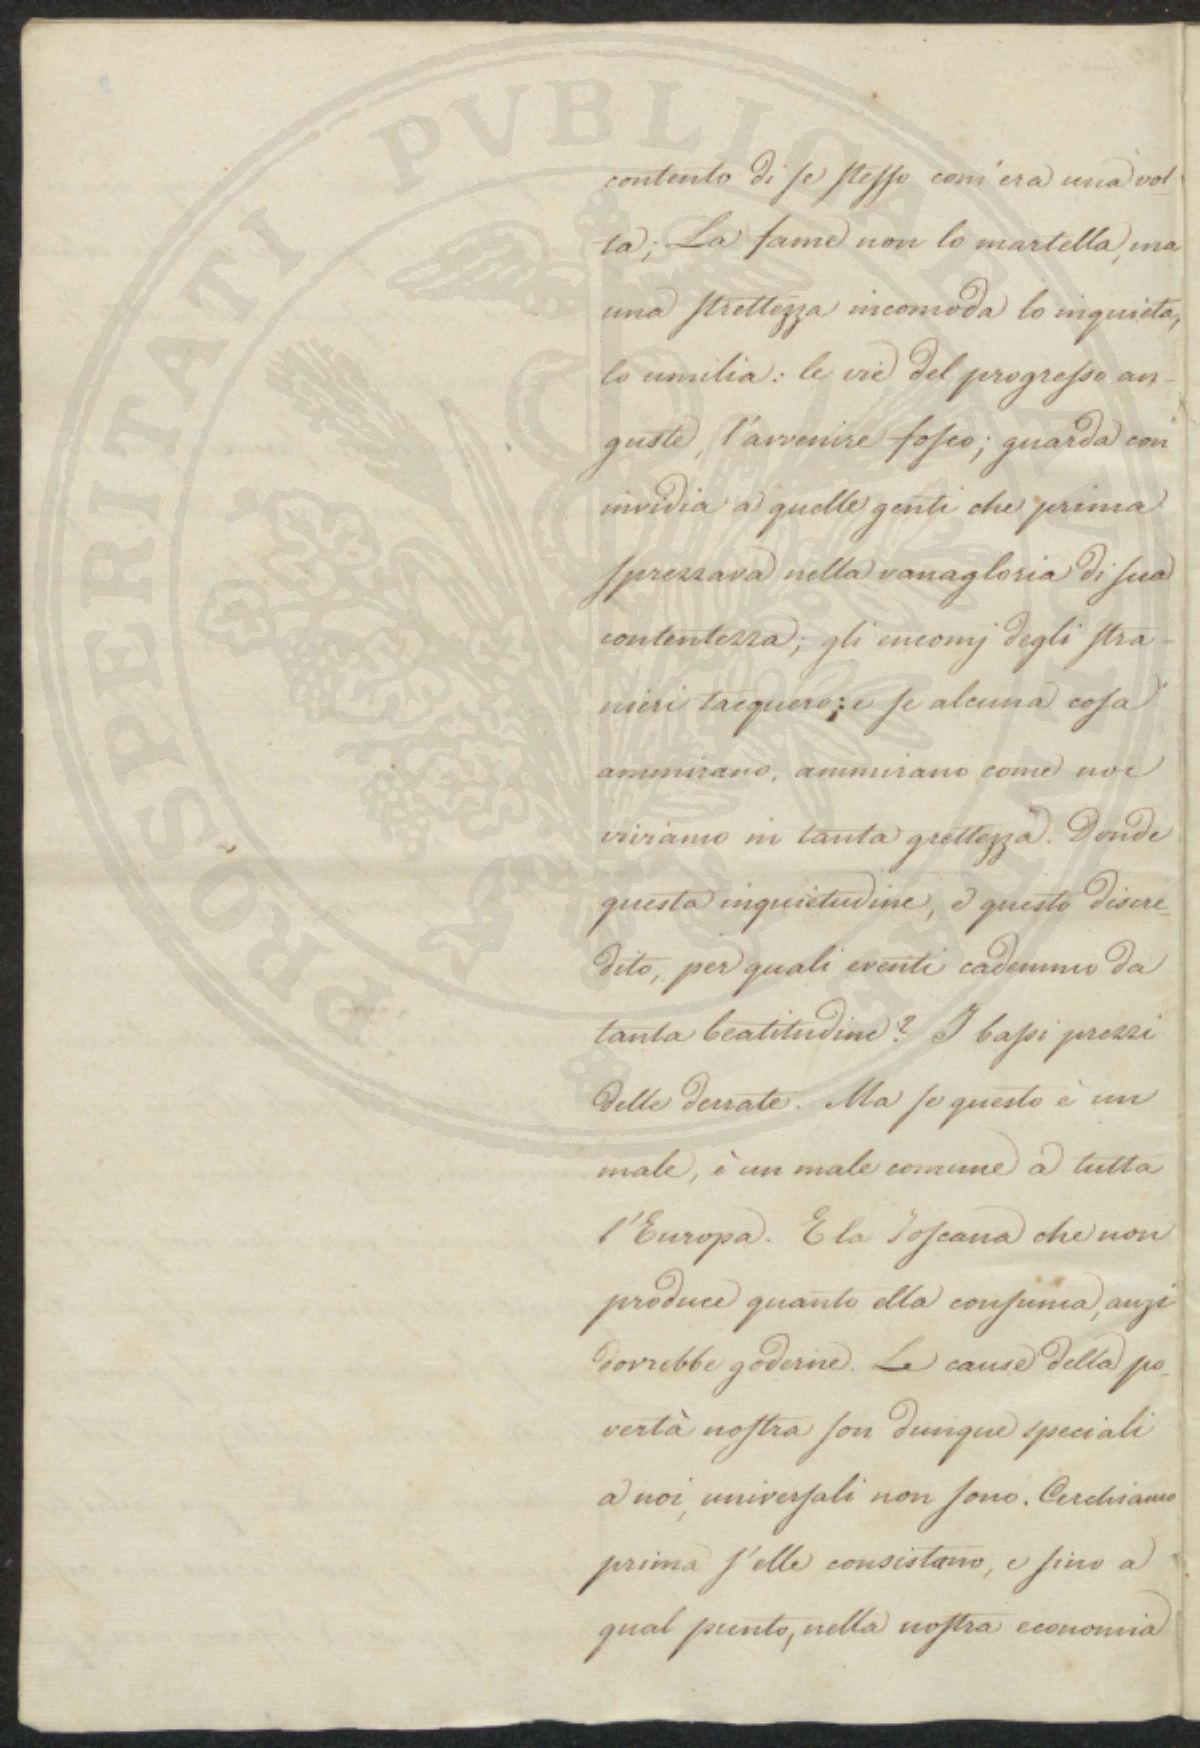 PROSPERITATI PVBLICAE AVGENDAE
contento di se stesso com'era una vol-
ta; La fame non lo martella, ma
una strettezza incomoda lo inquieta,
lo umilia: le vie del progresso an-
guste, l'avvenire fosco; guarda con
invidia a quelle genti che prima
sprezzava nella vanagloria di sua
contentezza; gli encomj degli stra-
nieri tacquero; e se alcuna cosa
ammirano, ammirano come noi
viviamo in tanta grettezza. Donde
questa inquietudine, e questo discre-
dito, per quali eventi cademmo da
tanta beatitudine? I bassi prezzi
delle derrate. Ma se questo è un
male, è un male comune a tutta
l'Europa. E la Toscana che non
produce quanto ella consuma, anzi
dovrebbe goderne. Le cause della po-
vertà nostra son dunque speciali
a noi, universali non sono. Cerchiamo
prima s'elle consistano, e sino a
qual punto, nella nostra economia